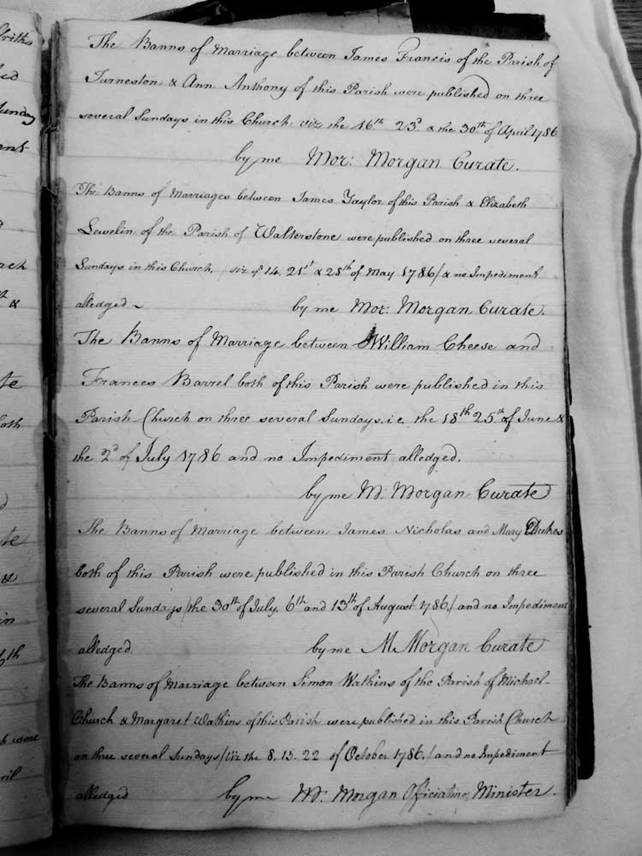 The Banns of Marriage between James Francis of the Parish of
Turneston & Ann Anthony of this Parish were published on three
several Sundays in this Church viz the 16th 23d & the 30th of April 1786
by me Mor: Morgan Curate.
The Banns of Marriages between James Taylor of this Parish & Elizabeth
Lewelin of the Parish of Walterstone were published on three several
Sundays in this Church, / viz ye 14, 21st & 28th of May 1786/ & no Impediment
alledged ~ by me Mor: Morgan Curate.
The Banns of Marriage between William Cheese and
Frances Barrel both of this Parish were published in this
Parish Church on three several Sundays. i.e. the 18th 25th of June &
the 2d of July 1786 and no Impediment alledged.
by me M: Morgan Curate
The Banns of Marriage between James Nicholas and Mary
both of this Parish were published in this Parish Church on three
several Sundays /the 30th of July, 6th and 13th of August 1786/ and no Impediment
alledged. by me M Morgan Curate
The Banns of Marriage between Simon Watkins of the Parish of Michael-
Church & Margaret Watkins of this Parish were published in this Parish Church
on three several Sundays /viz the 8. 15. 22 of October 1786./ and no Impediment
alledged by me Mr. Morgan Officiating Minister.